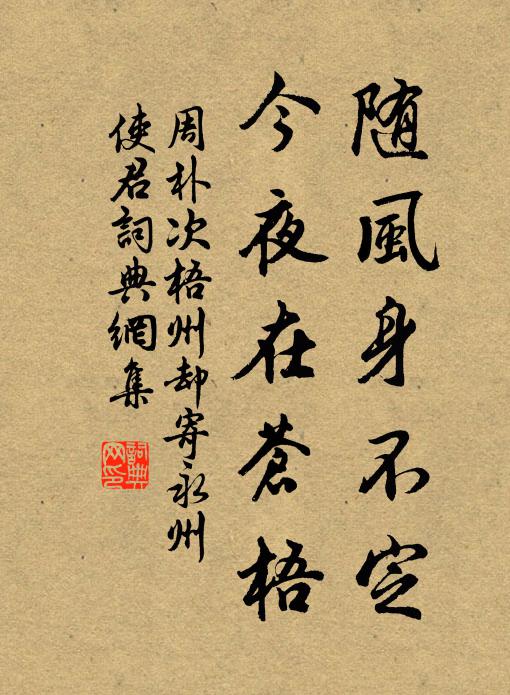 随風身不定
今夜在蒼梧
周朴次梧州却寄永州
使君詞典網集
詞典
网印